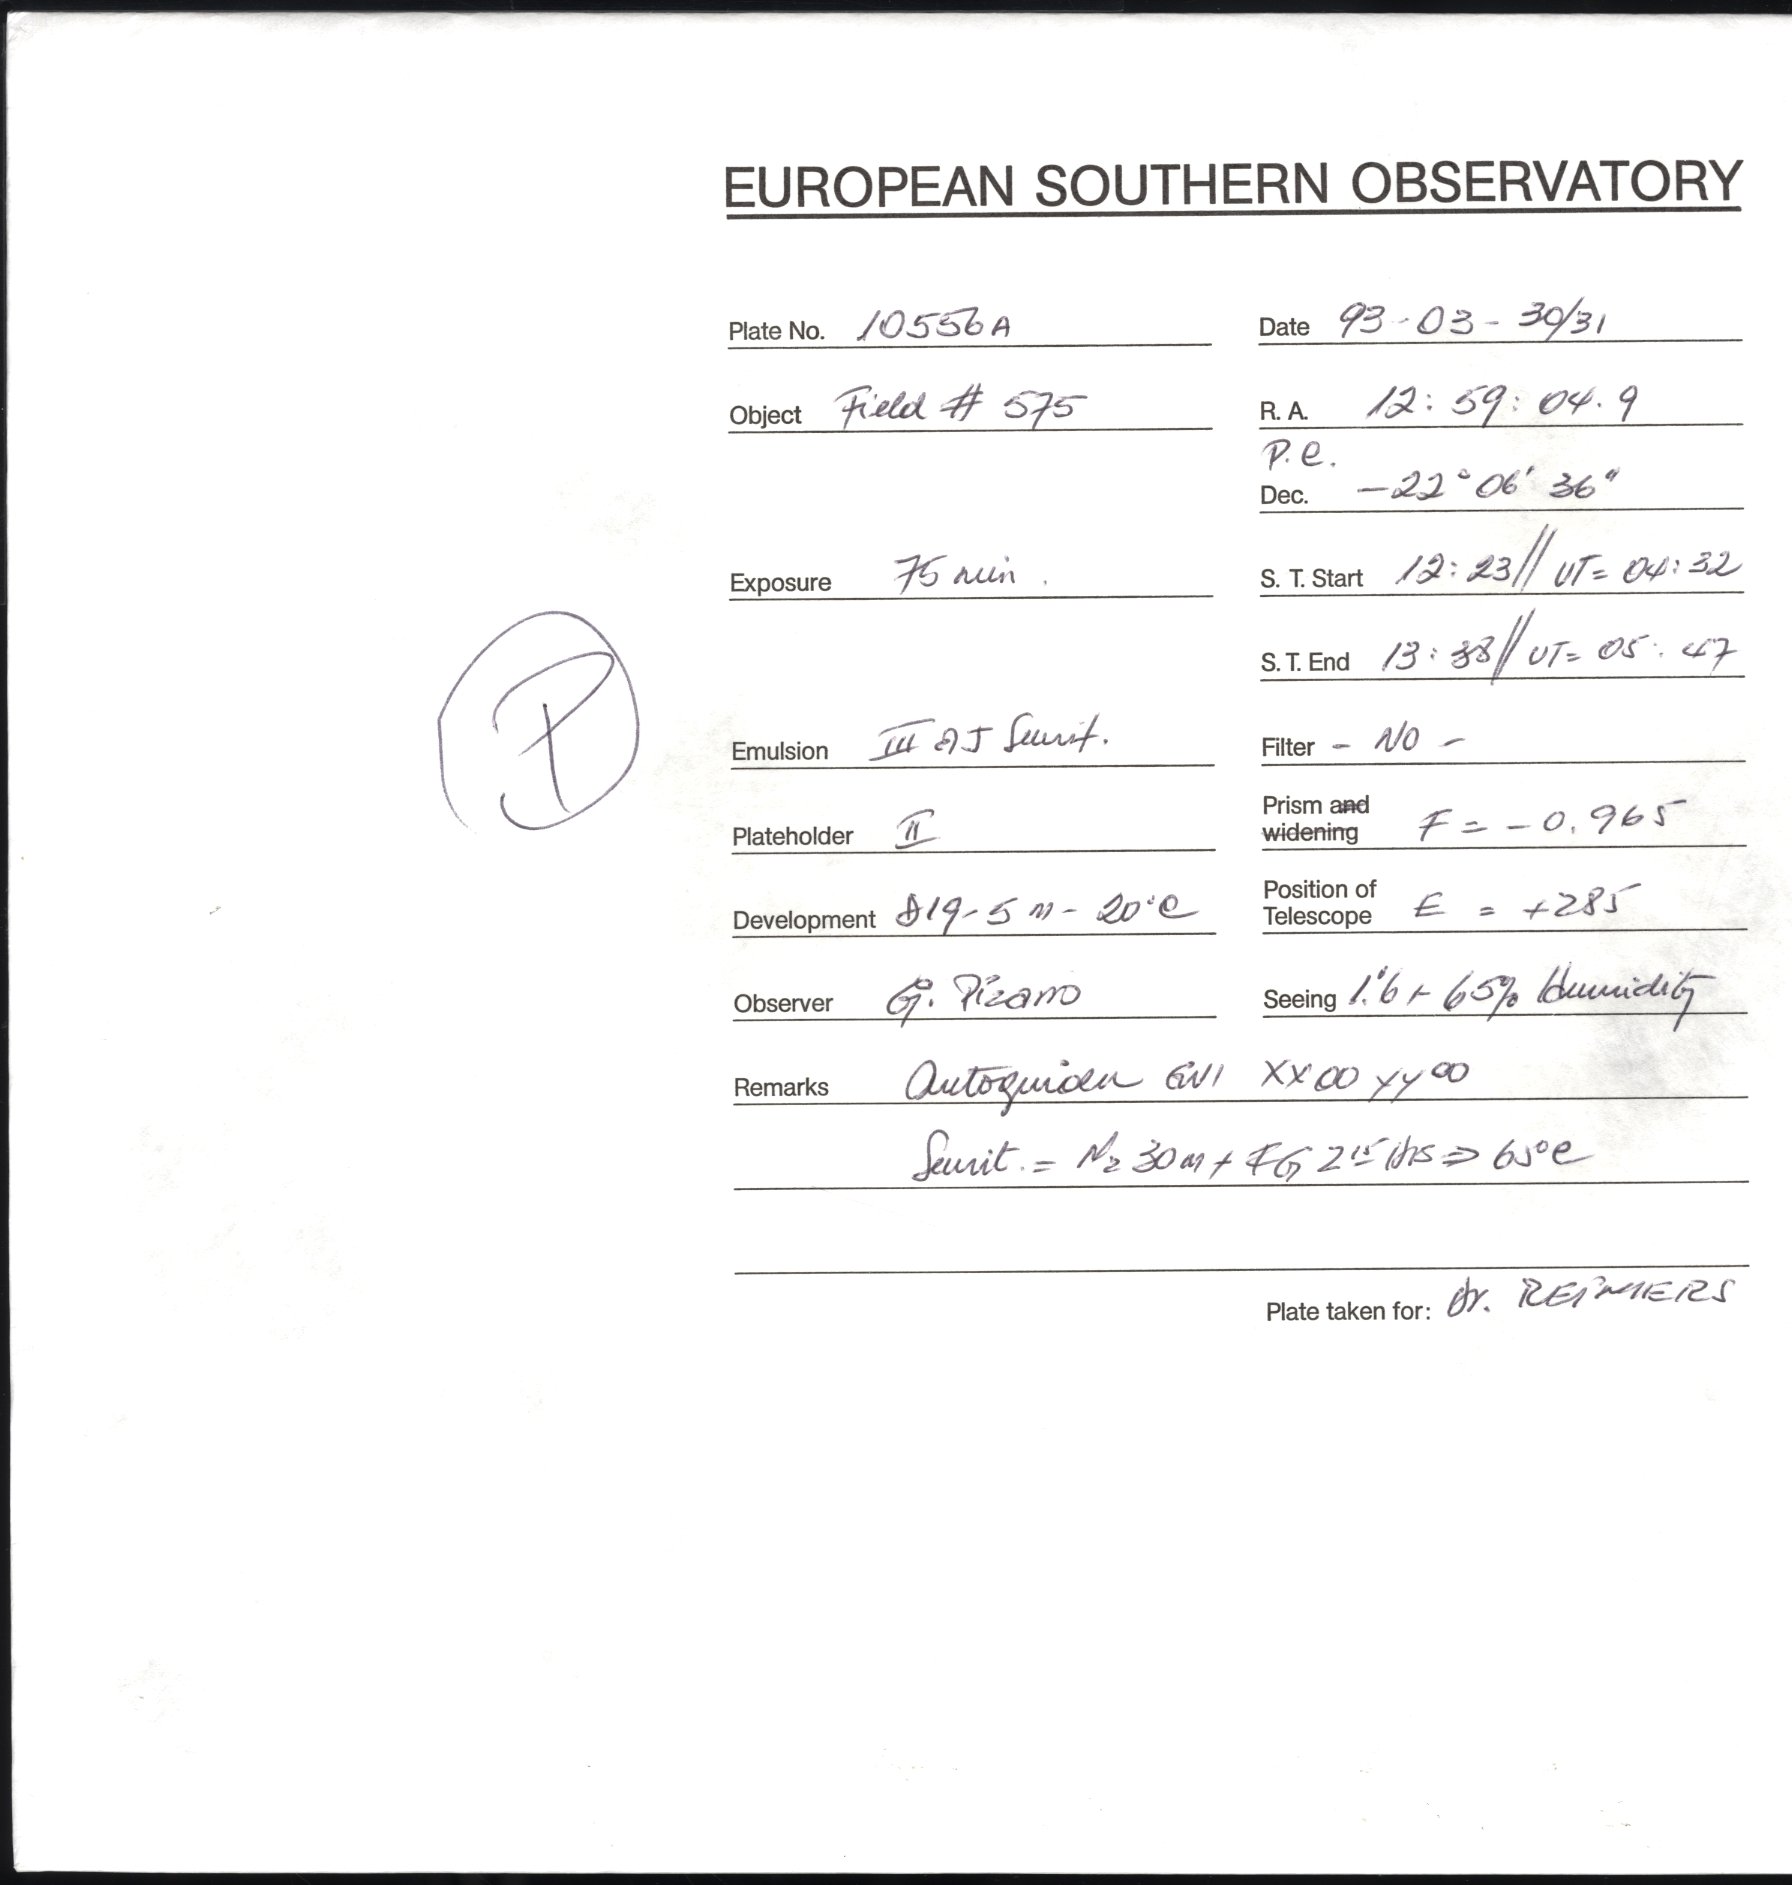 EUROPEAN SOUTHERN OBSERVATORY
Plate No. 10556A Date 93-03-30/31
Object Field # 575 R. A. 12: 59: 04.9
P.e.
Dec. -22° 06' 36"
Exposure 75 min. S. T. Start 12: 23 // UT= 04: 32
S. T. End 13: 38 // UT= 05: 47
Emulsion III aJ Sensit. Filter - NO -
Plateholder II Prism and widening F = -0.965
Development D19-5m-20°C Position of Telescope E = +285
Observer G. Pizarro Seeing 1"6 + 65% Humidity
Remarks Autoguider XX00 yy00
Sensit. = N2 30m + FG 2 Hrs => 65°C
Plate taken for: Dr. REIMERS
P